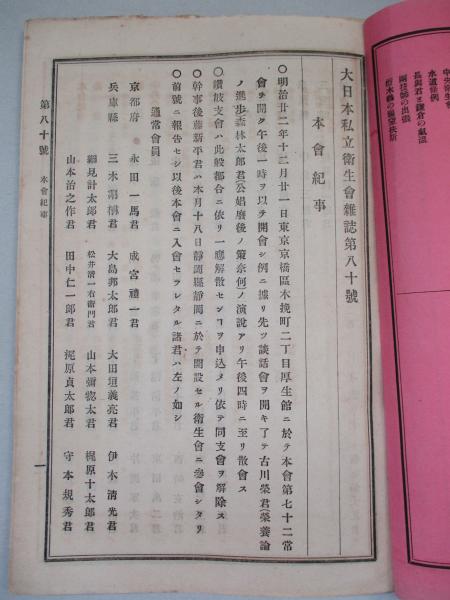 大日本私立衞生會雜誌第八十號
本會紀事
〇明治廿二年十二月廿一日東京京橋區木挽町二丁目厚生館ニ於テ本會第七十二常
會ヲ開ク午後一時ヲ以テ開會シ例ニ據リ先ツ談話會ヲ開キ了テ古川榮君(榮養論
ノ進步)森林太郎君(公娼廢後ノ策奈何)ノ演說アリ午後四時ニ至リ散會ス
〇讃岐支會ハ此般都合ニ依リ一應解散センヿヲ申込メリ依テ同支會ヲ解除ス
〇幹事後藤新平君ハ本月十八日靜岡縣靜岡ニ於テ開設セル衛生會ニ參會シタリ
〇前號ニ報告セシ以後本會ニ入會セラレタル諸君ハ左ノ如シ
通常會員
京都府 永田一馬君 成宮禮一君
兵庫縣 三木 君 大島邦太郎君 大田垣義亮君 伊木清光君
見計太郎君 松井淸一右衞門君 山本 太君 梶原十太郎君
山本治之作君 田中仁一郎君 梶原貞太郎君 守本規秀君
第八十號 本會紀事
一
水道條例
長與君と鎌倉の氣溫
の出張